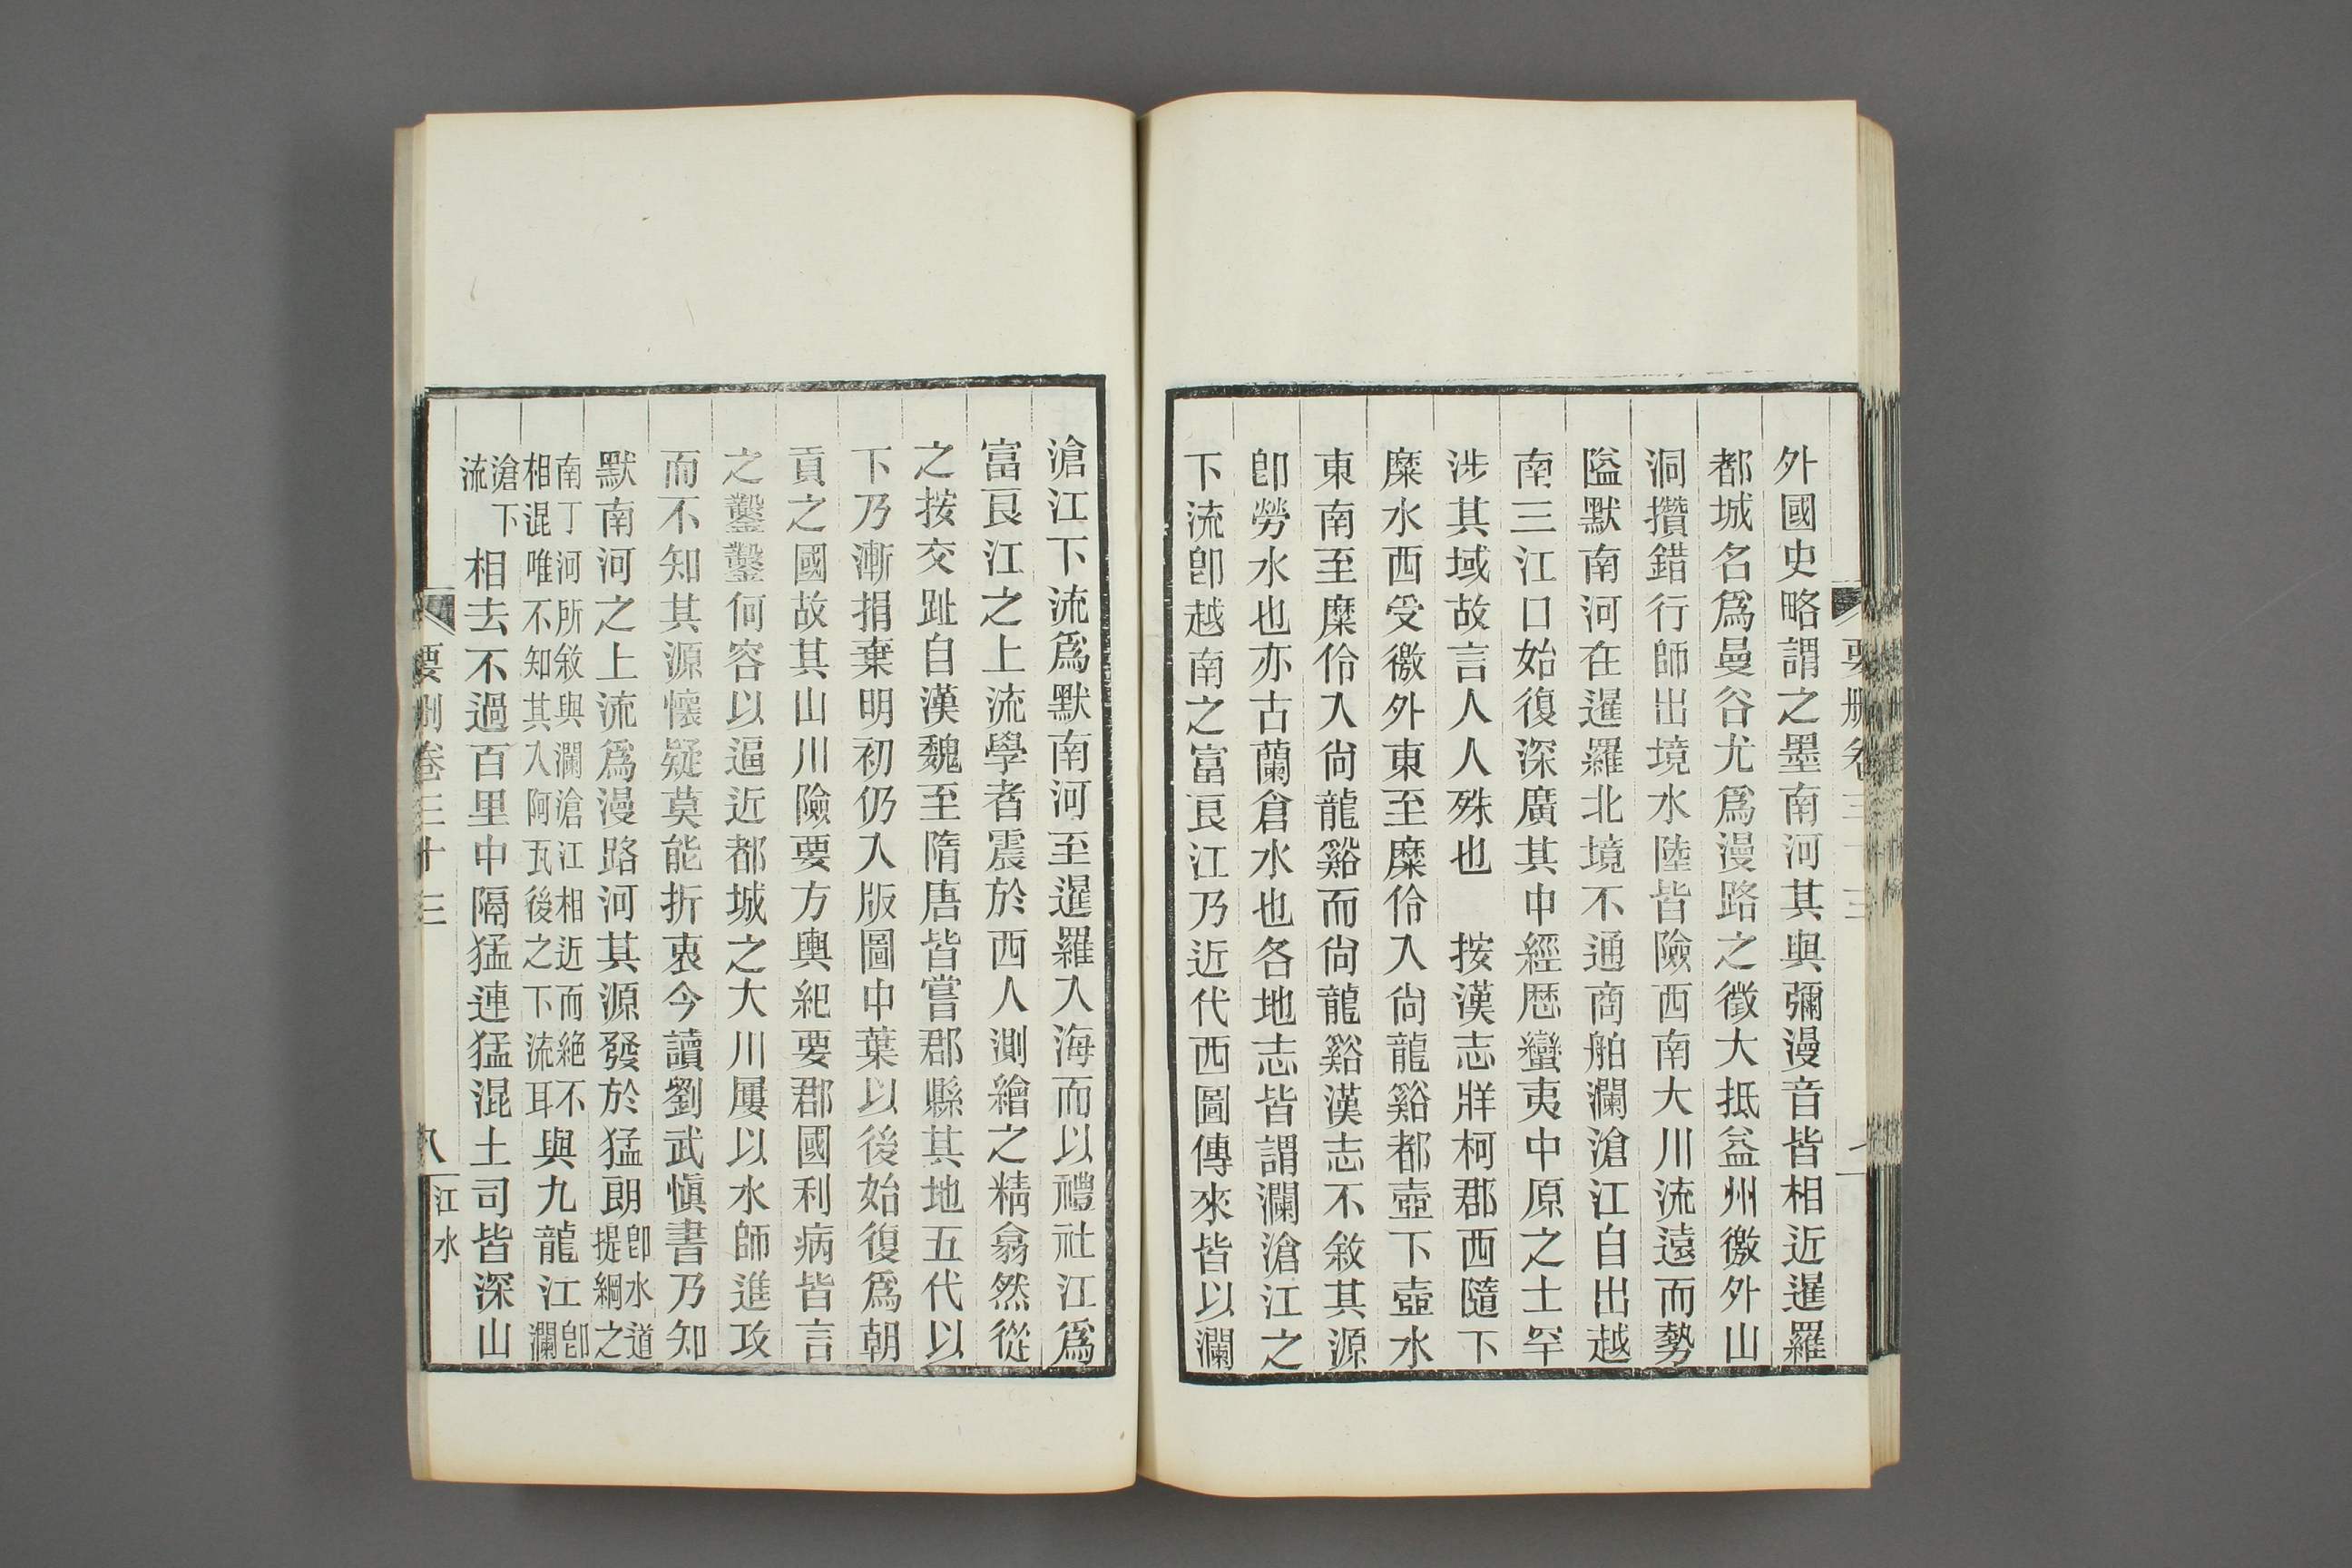 外國史略謂之墨南河其與彌漫音皆相近暹羅
都城名爲曼谷尤爲漫路之徵大抵益州徼外山
洞攢錯行師出境水陸皆險西南大川流遠而勢
隘默南河在暹羅北境不通商舶瀾滄江自出越
南三江口始復深廣其中經歷蠻夷中原之士罕
涉其域故言人人殊也　按漢志牂柯郡西隨下
糜水西受徼外東至糜伶入尙龍谿都壺下壺水
東南至糜伶入尙龍谿而尙龍谿漢志不敘其源
卽勞水也亦古蘭倉水也各地志皆謂瀾滄江之
下流卽越南之富良江乃近代西圖傳來皆以瀾
滄江下流爲默南河至暹羅入海而以禮社江爲
富良江之上流學者震於西人測繪之精翕然從
之按交趾自漢魏至隋唐皆嘗郡縣其地五代以
下乃漸捐棄明初仍入版圖中葉以後始復爲朝
貢之國故其山川險要方輿紀要郡國利病皆言
之鑿鑿何容以逼近都城之大川屢以水師進攻
而不知其源懷疑莫能折衷今讀劉武愼書乃知
默南河之上流爲漫路河其源發於猛朗卽水道提綱之
南丁河所敘與瀾滄江相近而絕不相混唯不知其入阿瓦後之下流耳與九龍江卽瀾
滄下流相去不過百里中隔猛連猛混土司皆深山
要刪卷三十三
八
江水